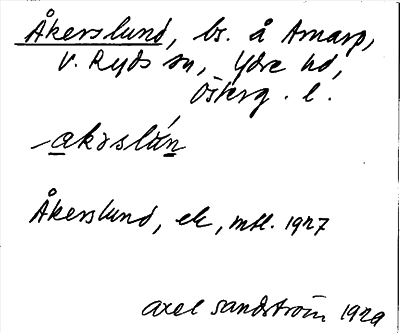 Åkerslund, bs. å Amarp,
V. Ryds sn, Ydre hd,
Österg. l.
akərslún
Åkerslund, ek, mtl. 1927
Axel Sandström 1929